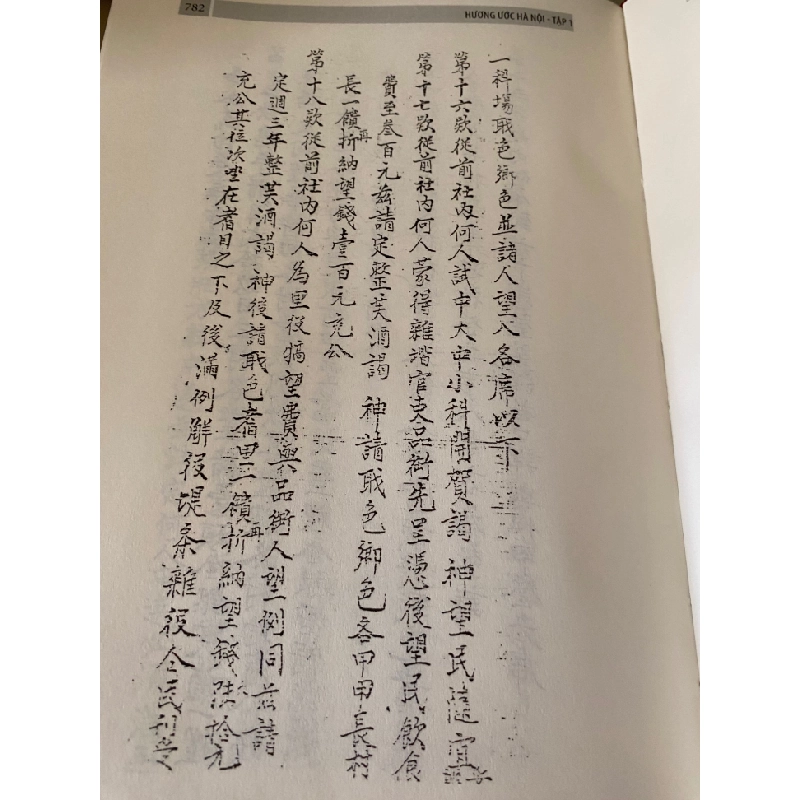 782
HƯƠNG ƯỚC HÀ NỘI - TẬP 1
一科場職色鄉色並諸人望八各席四
第十六欵從前社內何人試中大中小科開賀謁神望民隨宜
第十七欵從前社內何人蒙得雜階官吏品銜先呈憑後望民飲食
費至叁百元茲請定整芙酒謁神請职色鄉色各甲甲長村
長一饋再折納望錢壹百元充公
第十八欵從前社內何人為里役犒望費與品銜人望例同茲請
定週三年整芙酒謁神後請职色耆里一饋再折納望錢陸拾元
充公其位次坐在耆目之下及後滿例觧役堤条雜役仝民刊受